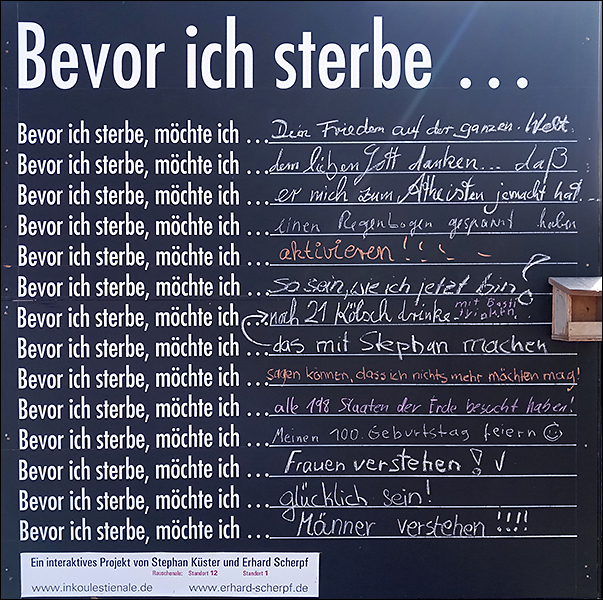 Bevor ich sterbe ...
Bevor ich sterbe, möchte ich ... Dein Frieden auf der ganzen Welt.
Bevor ich sterbe, möchte ich ... dem lieben Gott danken... daß
Bevor ich sterbe, möchte ich ... er mich zum Atheisten gemacht hat...
Bevor ich sterbe, möchte ich ... einen Regenbogen gespannt haben
Bevor ich sterbe, möchte ich ... aktivieren!!!
Bevor ich sterbe, möchte ich ... so sein, wie ich jetzt bin
Bevor ich sterbe, möchte ich ... noch 21 Kölsch drinke mit Basti trinken!
Bevor ich sterbe, möchte ich ... das mit Stephan machen
Bevor ich sterbe, möchte ich ... sagen können, dass ich nichts mehr möchten mag!
Bevor ich sterbe, möchte ich ... alle 198 Staaten der Erde besucht haben!
Bevor ich sterbe, möchte ich ... Meinen 100. Geburtstag feiern ☺
Bevor ich sterbe, möchte ich ... Frauen verstehen! ✓
Bevor ich sterbe, möchte ich ... glücklich sein!
Bevor ich sterbe, möchte ich ... Männer verstehen!!!!
Ein interaktives Projekt von Stephan Küster und Erhard Scherpf
Rauschenale: Standort 12 Standort 1
www.inkoulestienale.de www.erhard-scherpf.de